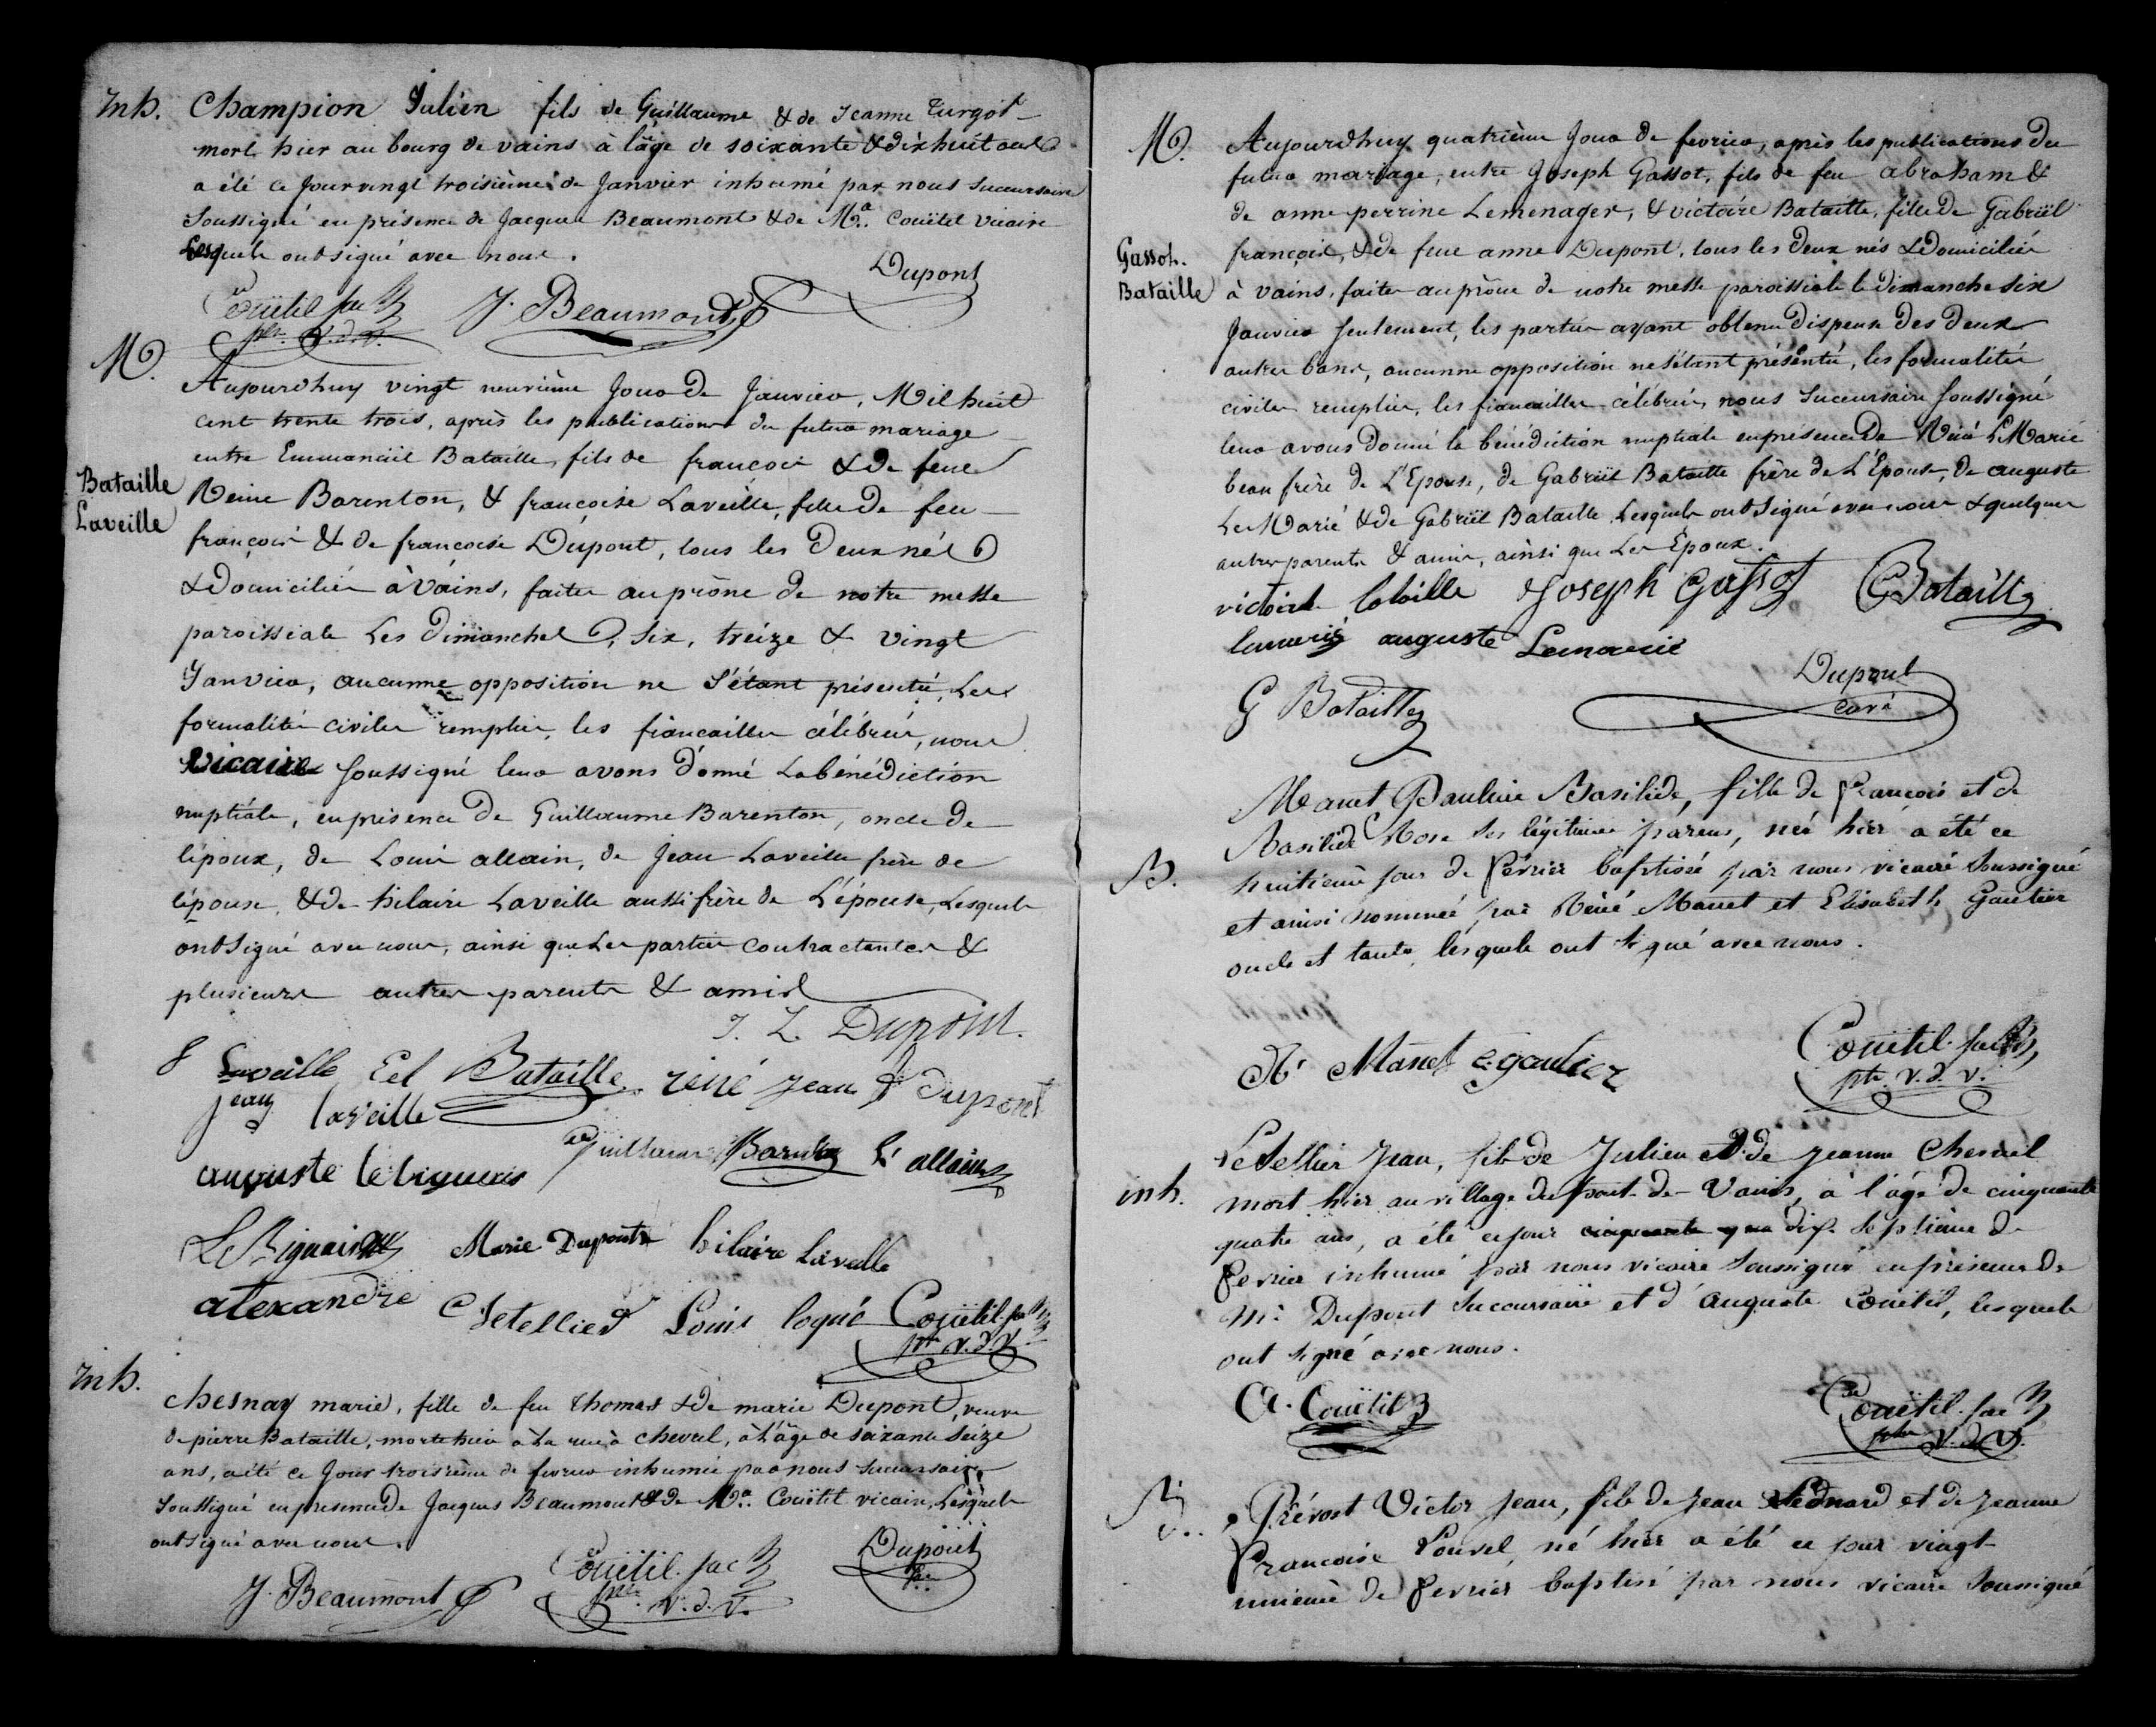 Inh. Champion Julien fils de Guillaume & de Jeanne Turgot
mort hier au bourg de vains à l'âge de soixante & dix huit ans
a été ce Jour vingt troisième de Janvier inhumé par nous succursaire
Soussigné en présence de Jacques Beaumont & de Mr. Couëtil vicaire
Lesquels ont signé avec nous.
Couëtil
ptr. v. d. v.
J. Beaumont
Dupont
M.
Aujourdhuy vingt neuvième Jour de Janvier, Mil huit
cent trente trois, après les publications du futur mariage
entre Emmanüel Bataille, fils de françois & de feue
Bataille
Laveille
Reine Barenton, & françoise Laveille, fille de feu
françois & de francoise Dupont, tous les deux nés
& domiciliés à Vains, faites au prône de notre messe
paroissiale Les dimanches, six, treize & vingt
Janvier, aucunne opposition ne s'étant présentée, Les
formalités civiles remplies, les fiancailles célébrées, nous
vicaire soussigné leur avons donné La bénédiction
nuptiale, en présence de Guillaume Barenton, oncle de
l'époux, de Louis allain, de Jean Laveille frère de
l'épouse, & de hilaire Laveille aussi frère de L'épouse, Lesquels
ont signé avec nous, ainsi que Les parties contractantes &
plusieurs autres parents & amis
J. L. Dupont.
f Laveille Eel Bataille réné jean dupont
jean laveille
Guillaume Barenton L. allain
auguste lebigueais
LeBiguais Marie Dupont hilaire Laveille
alexandre Letellier Louis loqué Couëtil
ptr v. d. v.
Inh.
Chesnay marie, fille de feu thomas & de marie Dupont, veuve
de pierre Bataille, morte hier à La rue à cheval, à L'âge de soixante seize
ans, a été ce Jour troisième de fevrier inhumée par nous succursaire
Soussigné en presence de Jacques Beaumont & de Mr. Couëtil vicaire, Lesquels
ont signé avec nous.
J. Beaumont
Couëtil
ptr. v. d. v.
Dupont
M. Aujourdhuy quatrième Jour de fevrier, après les publications du
futur mariage, entre Joseph Gassot, fils de feu abraham &
de anne perrine Lemenager, & victoire Bataille, fille de Gabriël
Gassot.
Bataille
françois, & de feue anne Dupont, tous les deux nés & domiciliés
à vains, faites au prône de notre messe paroissiale le dimanche six
Janvier seulement, les parties ayant obtenu dispense des deux
autres bans, aucunne opposition ne s'étant présentée, les formalités
civiles remplies, les fiancailles célébrées, nous succursaire soussigné
leur avons donné la bénédiction nuptiale en présence de Réné LeMarié
beau frère de L'Epouse, de Gabriël Bataille frère de L'Epouse, de auguste
Le Marié & de Gabriël Bataille Lesquels ont signé avec nous & quelques
autres parents & amis, ainsi que Les Epoux.
victoire bataille Joseph Gassot G Bataille
lemarié auguste Lemarié
G Bataille
Dupont
curé
Manet Pauline Basilide, fille de François et de
Basilide Rose ses légitimes pareus, née hier a été ce
B. huitieme jour de Février baptisée par nous vicaire soussigné
et ainsi nommée par Réné Manet et Elisabeth Gautier
oncle et tante, lesquels ont signé avec nous.
R. Manet E. gautier
Couëtil
ptr. v. d. v.
Letellier Jean, fils de Julien et de Jeanne Chesnel
inh. mort hier au village du pont-de-Vains, à l'âge de cinquante
quatre ans, a été ce jour dix septième de
fevrier inhumé par nous vicaire soussigné en présence de
Mr. Dupont succursaire et d'Auguste Couëtil, lesquels
ont signé avec nous.
A. Couëtil
Couëtil
ptr v. d. v.
B. Prévost Victor Jean, fils de Jean Lednard et de Jeanne
Francoise Louvel né hier a été ce jour vingt
unieme de Fevrier baptisé par nous vicaire soussigné